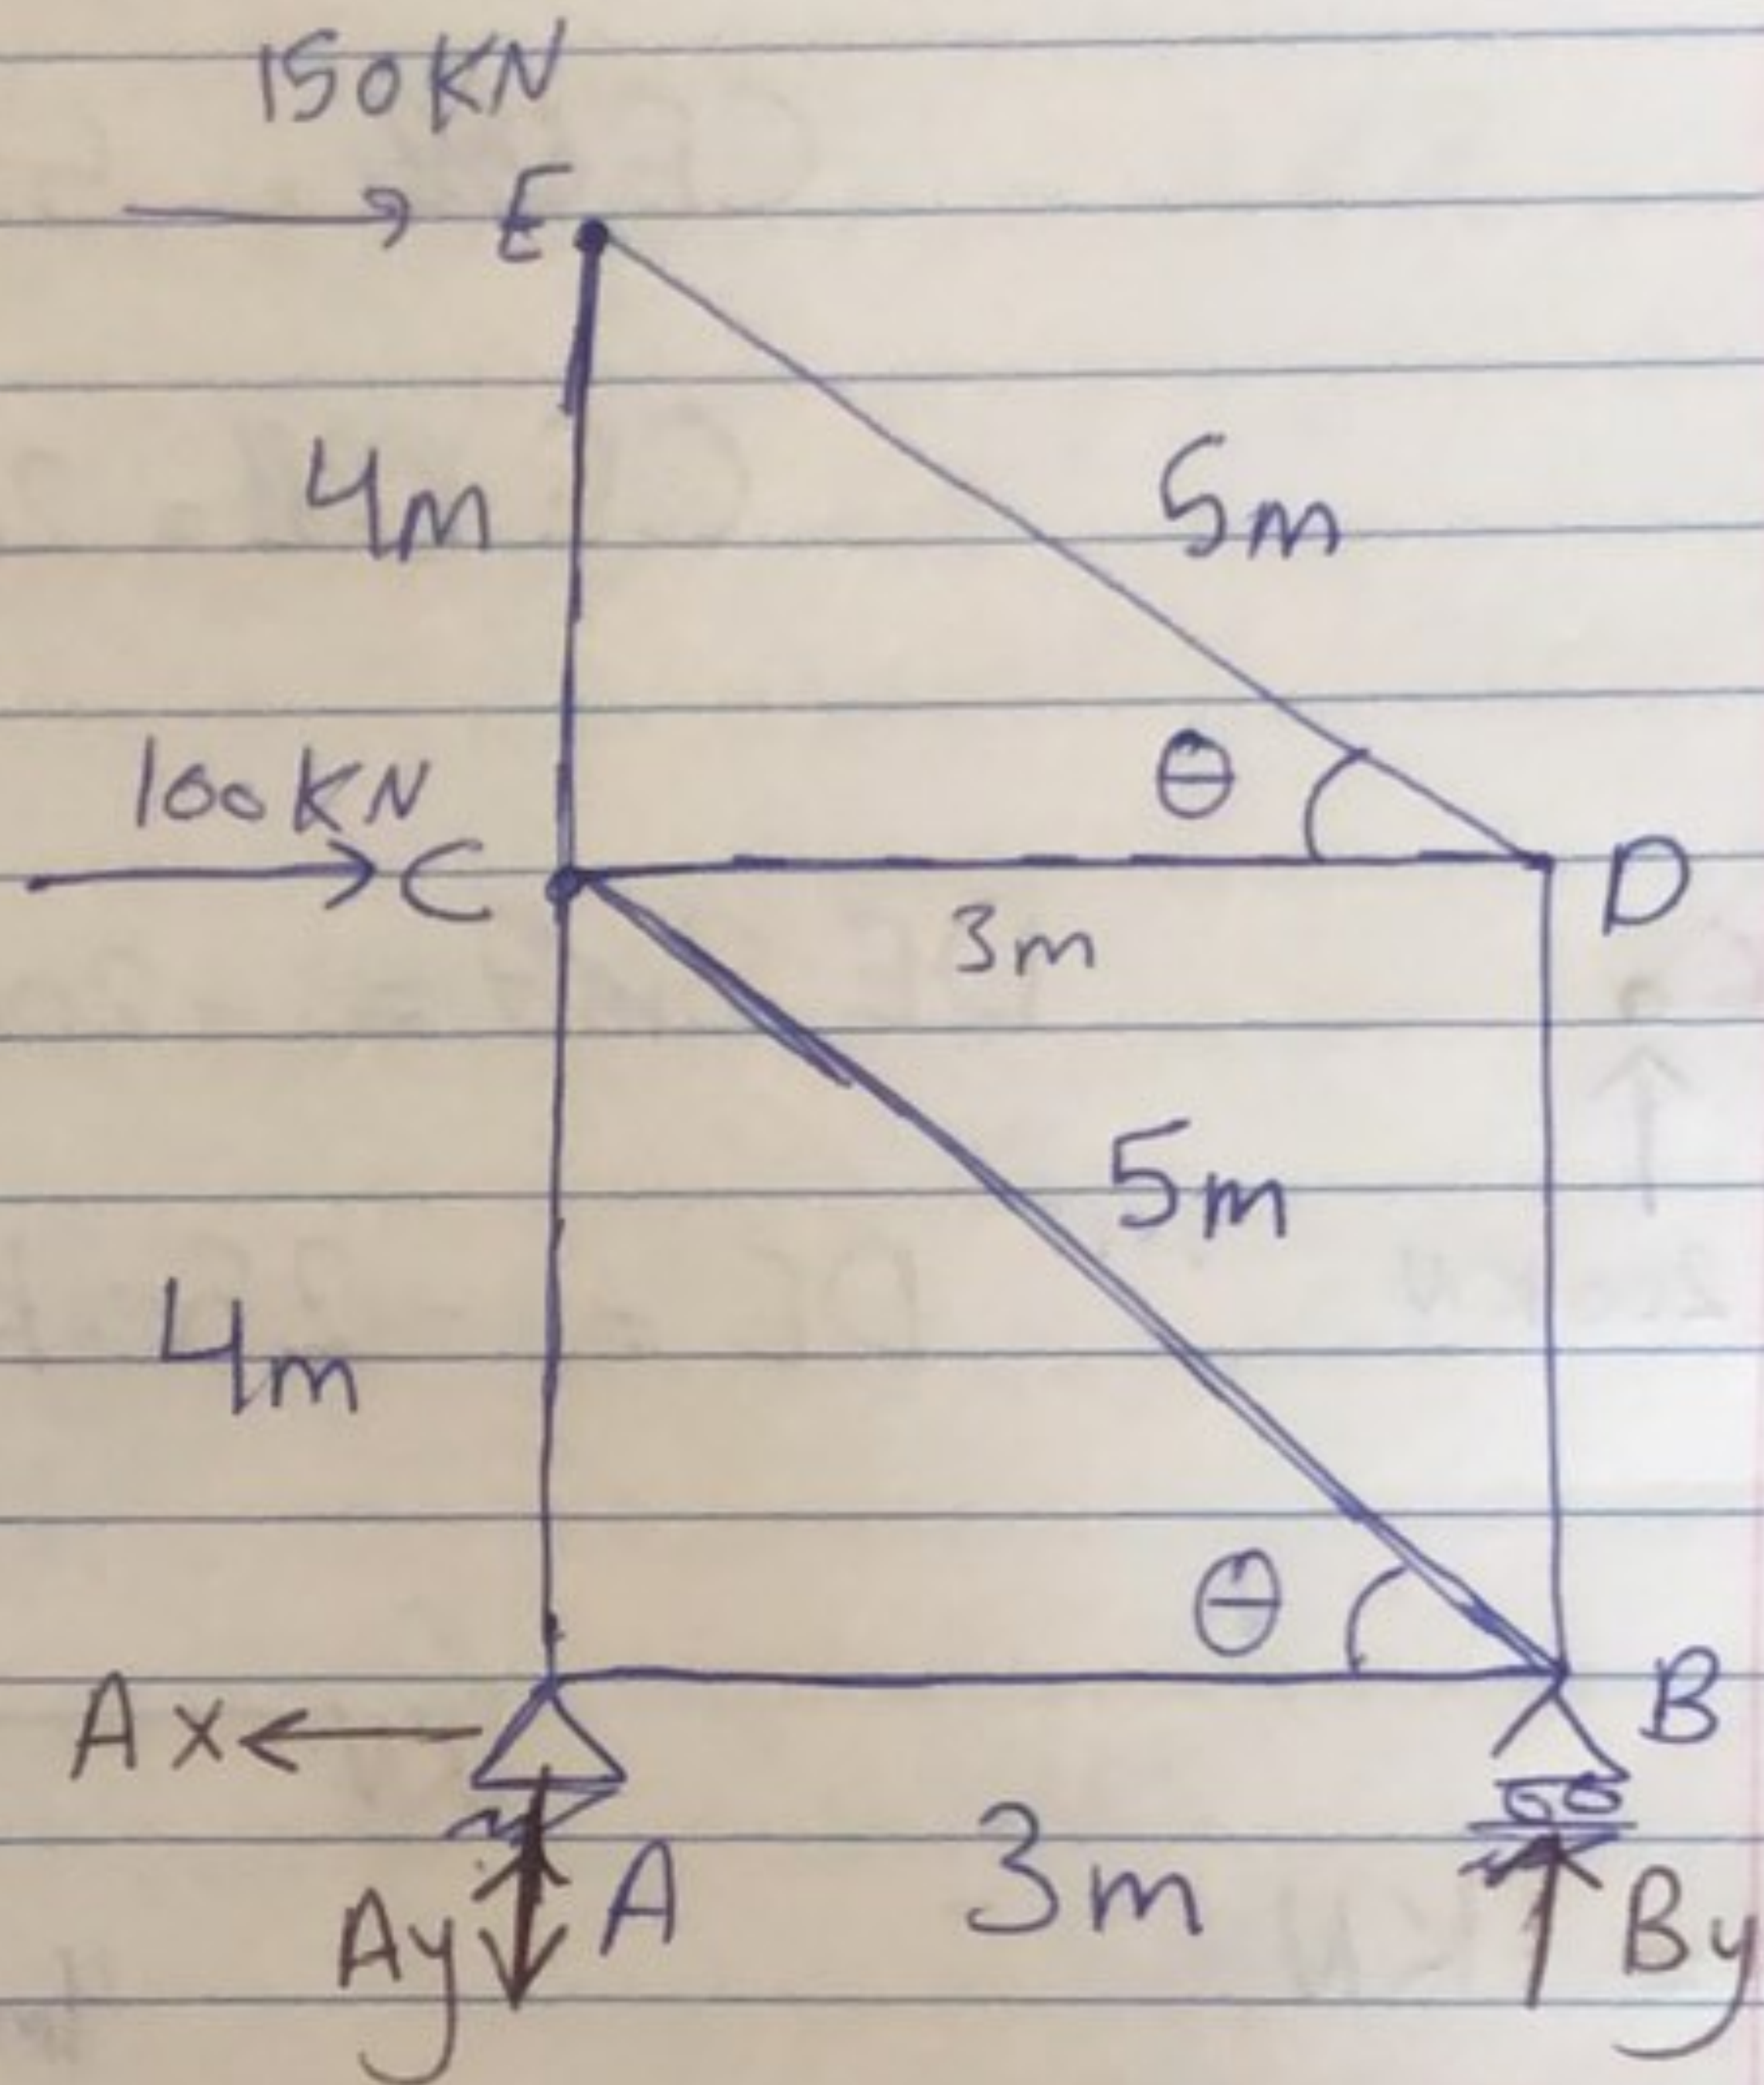 150KN
E
4m
5m
θ
100KN
C
D
3m
5m
4m
θ
Ax
B
A
3m
Ay
By